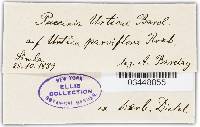 Puccinia Urticae Barcl.
auf Urtica parviflora Roxb.
Simla
25.10.1889
leg. A. Barclay
NEW YORK
ELLIS
COLLECTION
BOTANICAL GARDEN
03448055
ex Herb. Dietel